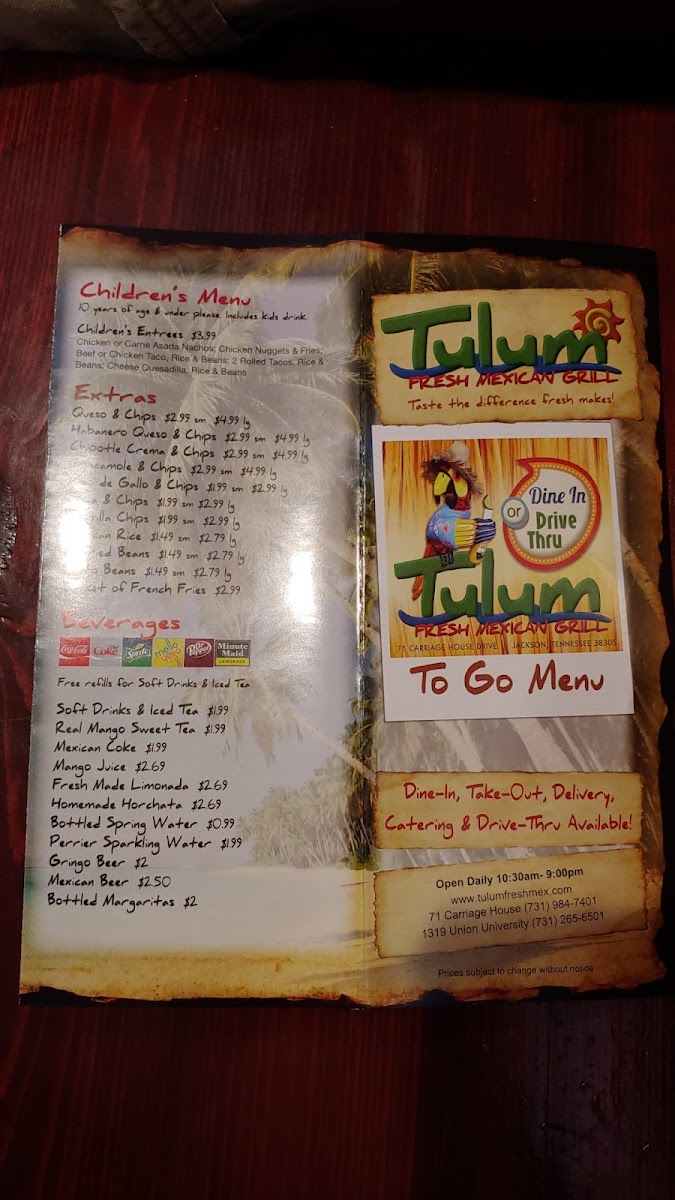 Children's Menu
10 years of age & under please. Includes kids drink.
Children's Entrees $3.99
Chicken or Carne Asada Nachos; Chicken Nuggets & Fries;
Beef or Chicken Taco, Rice & Beans; 2 Rolled Tacos, Rice &
Beans; Cheese Quesadilla, Rice & Beans
Extras
Queso & Chips $2.99 sm $4.99 lg
Habanero Queso & Chips $2.99 sm $4.99 lg
Chipotle Crema & Chips $2.99 sm $4.99 lg
& Chips $2.99 sm $4.99 lg
de Gallo & Chips $1.99 sm $2.99 lg
& Chips $1.99 sm $2.99 lg
Chips $1.99 sm $2.99 lg
Rice $1.49 sm $2.79 lg
Beans $1.49 sm $2.79 lg
Beans $1.49 sm $2.79 lg
of French Fries $2.99
Beverages
Coca-Cola
Diet Coke
Sprite
mello yello
Dr Pepper
Minute Maid
LEMONADE
Free refills for Soft Drinks & Iced Tea
Soft Drinks & Iced Tea $1.99
Real Mango Sweet Tea $1.99
Mexican Coke $1.99
Mango Juice $2.69
Fresh Made Limonada $2.69
Homemade Horchata $2.69
Bottled Spring Water $0.99
Perrier Sparkling Water $1.99
Gringo Beer $2
Mexican Beer $2.50
Bottled Margaritas $2
Tulum
FRESH MEXICAN GRILL
Taste the difference fresh makes!
Dine In
or
Drive
Thru
Tulum
FRESH MEXICAN GRILL
71 CARRIAGE HOUSE DRIVE || JACKSON, TENNESSEE 38305
To Go Menu
Dine-In, Take-Out, Delivery,
Catering & Drive-Thru Available!
Open Daily 10:30am- 9:00pm
www.tulumfreshmex.com
71 Carriage House (731) 984-7401
1319 Union University (731) 265-6501
Prices subject to change without notice